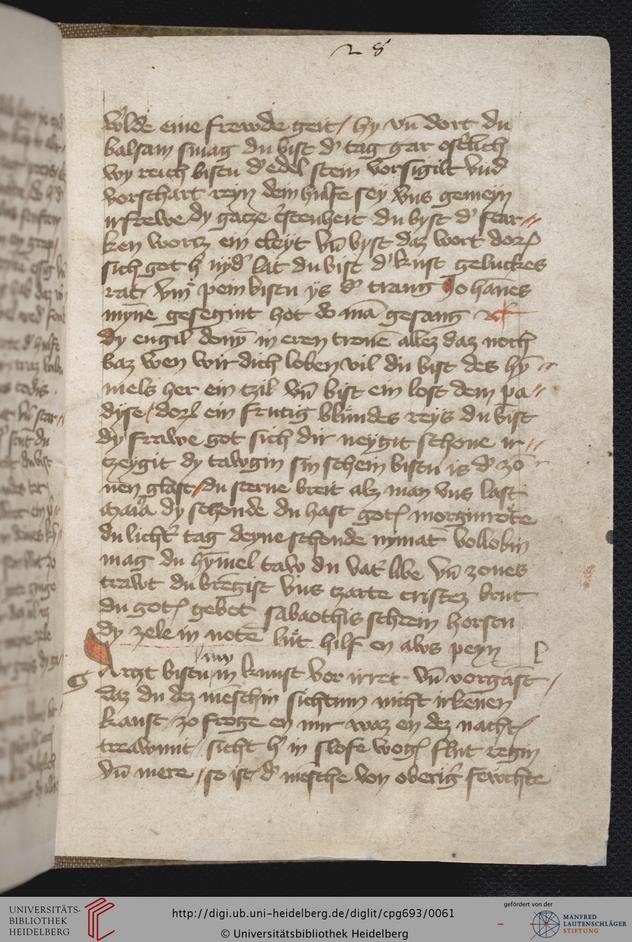 28
wolde eine frewde geit / hy vn̄ dort du
balsam smag du bist d' tag gar ostlich
wy reich bistu d' edel stein vorsigilt vnd
vorschart reyn dem hulfe sey vns gemeyn
du byst d' star⸗
ken wortz ein cleyt vn̄ byst daz wort
sich got h' lat du bist d' geluckes
rat pein bistu ys d' trang Johanes
myne gesegint hot do mā gesang
dy engil in eren tronen allez daz noch
baz wen wir dich loben wil du bist des hȳ⸗
mels her ein tzil vn̄ bist ein lost dem pa⸗
dyse / ein frutig blundes reys du bist
dy frawe got sich dir neygit schone ir⸗
tzeygit dy tawgin sin schein bistu is d' zo⸗
nen glast / du sterne breit alz man vns last
maria dy schonde du hast morginrote
du licht' tag deyne schonde nymat vollobin
mag du hȳmel taw du vat' libe vn̄ zones
trawt du bregist vns tzarte cristez brut
du gebot sabaothis schrein horstu
dy zele in note lut hilf en aws peyn
Argt bistu in kunst vor irret vn̄ vorgast /
daz du dez meschin sichtum nicht irkenen
kanst / zo froge en mir waz en dez nacht
trawmit / sicht h' in slofe wog flut regin
vn̄ mere / so ist d' mesche von oberig' fewchte
UNIVERSITÄTS-
BIBLIOTHEK
HEIDELBERG
http://digi.ub.uni-heidelberg.de/diglit/cpg693/0061
© Universitätsbibliothek Heidelberg
gefördert von der
MANFRED
LAUTENSCHLÄGER
STIFTUNG